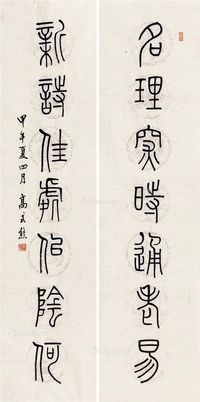 名理窮時通老易
新詩佳處似陰何
甲午夏四月 高式熊